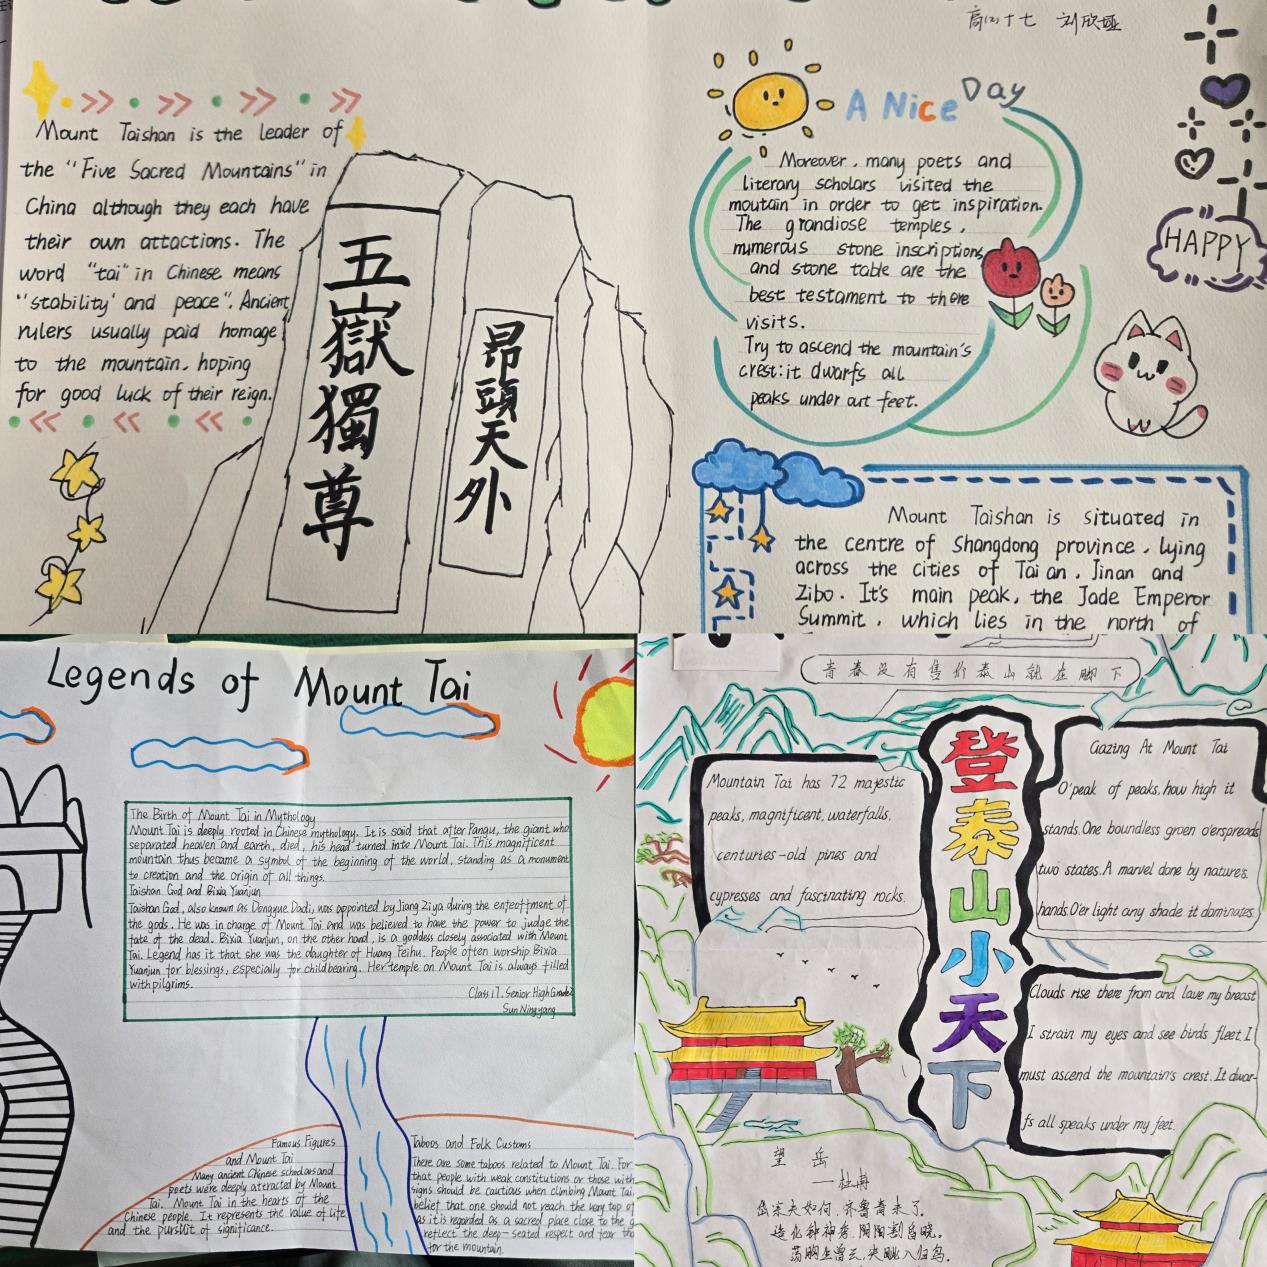 高(2)十七 刘欣娅
Mount Taishan is the leader of
the "Five Sacred Mountains" in
China although they each have
their own attactions. The
word "tai" in Chinese means
"stability' and peace". Ancient
rulers usually paid homage
to the mountain, hoping
for good luck of their reign.
五嶽獨尊
昂頭天外
A Nice Day
Moreover, many poets and
literary scholars visited the
moutain in order to get inspiration.
The grandiose temples,
numerous stone inscriptions
and stone table are the
best testament to there
visits.
Try to ascend the mountain's
crest: it dwarfs all
peaks under out feet.
HAPPY
Mount Taishan is situated in
the centre of Shangdong province, lying
across the cities of Tai an, Jinan and
Zibo. It's main peak, the Jade Emperor
Summit, which lies in the north of
Legends of Mount Tai
The Birth of Mount Tai in Mythology
Mount Tai is deeply rooted in Chinese mythology. It is said that after Pangu, the giant who
separated heaven and earth, died, his head turned into Mount Tai. This magnificent
mountain thus became a symbol of the beginning of the world, standing as a monument
to creation and the origin of all things.
Taishan God and Bixia Yuanjun
Taishan God, also known as Dongyue Dadi, was appointed by Jiang Ziya during the enfeoffment of
the gods. He was in charge of Mount Tai and was believed to have the power to judge the
fate of the dead. Bixia Yuanjun, on the other hand, is a goddess closely associated with Mount
Tai. Legend has it that she was the daughter of Huang Feihu. People often worship Bixia
Yuanjun for blessings, especially for childbearing. Her temple on Mount Tai is always filled
with pilgrims.
Class 17, Senior High Grade2
Sun Ningyang
Famous Figures
and Mount Tai
Many ancient Chinese scholars and
poets were deeply attracted by Mount
Tai. Mount Tai in the hearts of the
Chinese people. It represents the value of life
and the pursuit of significance.
Taboos and Folk Customs
There are some taboos related to Mount Tai. For
that people with weak constitutions or those with
signs should be cautious when climbing Mount Tai.
belief that one should not reach the very top of
as it is regarded as a sacred place close to the g
reflect the deep-seated respect and fear tho
for the mountain.
青春没有售价泰山就在脚下
登泰山小天下
Mountain Tai has 72 majestic
peaks, magnificent, waterfalls,
centuries-old pines and
cypresses and fascinating rocks.
Gazing At Mount Tai
O'peak of peaks, how high it
stands. One boundless green o'erspreads
two states. A marvel done by nature's
hands. O'er light any shade it dominates
Clouds rise there from and lave my breast
I strain my eyes and see birds fleet. I
must ascend the mountain's crest. It dwar-
fs all speaks under my feet.
望岳
—杜甫
岱宗夫如何,齐鲁青未了.
造化钟神秀,阴阳割昏晓.
荡胸生曾云,决眦入归鸟.